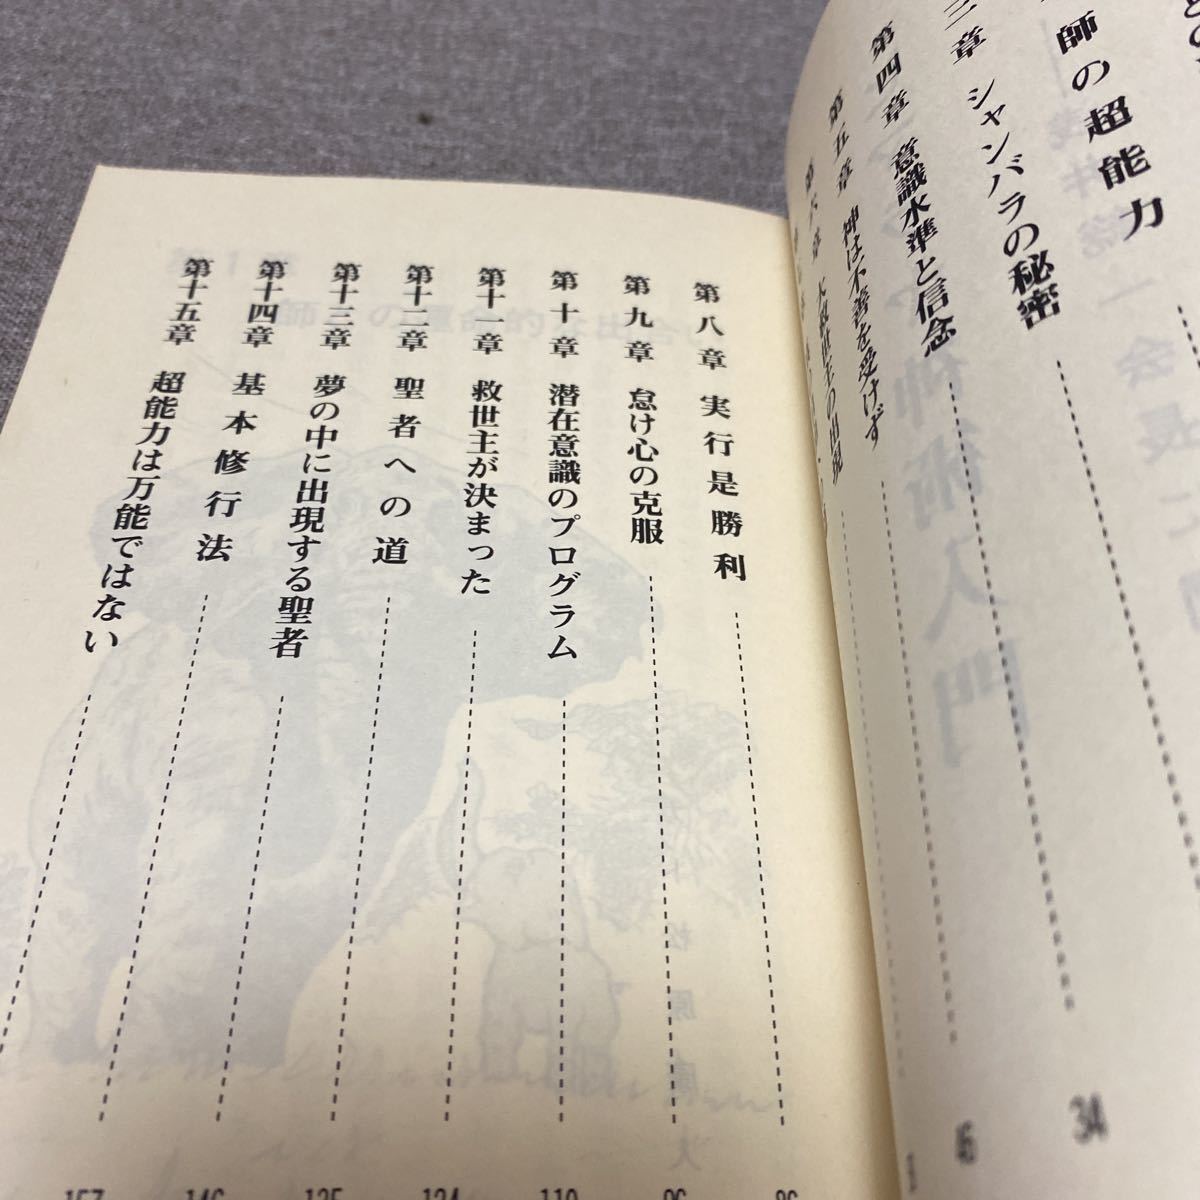 師の超能力
三章 シャンバラの秘密 34
第四章 意識水準と信念 46
第五章 神は不善を受けず
第六章 大救世主の出現
第八章 実行是勝利
第九章 怠け心の克服
第十章 潜在意識のプログラム
第十一章 救世主が決まった
第十二章 聖者への道
第十三章 夢の中に出現する聖者
第十四章 基本修行法
第十五章 超能力は万能ではない